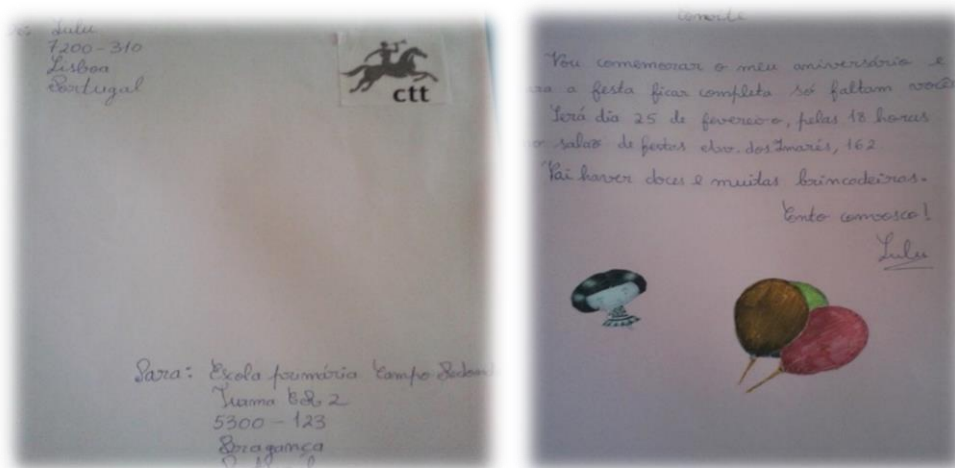 De: Lulu
7200-310
Lisboa
Portugal
ctt
Para: Escola primária Campo Redondo
Turma CR 2
5300-123
Bragança
Portugal
Convite
Vou comemorar o meu aniversário e
para a festa ficar completa só faltam vocês
Será dia 25 de fevereiro, pelas 18 horas
salão de festas dos Imarés, 162
Vai haver doces e muidas brincadeiras.
Conto convosco!
Lulu